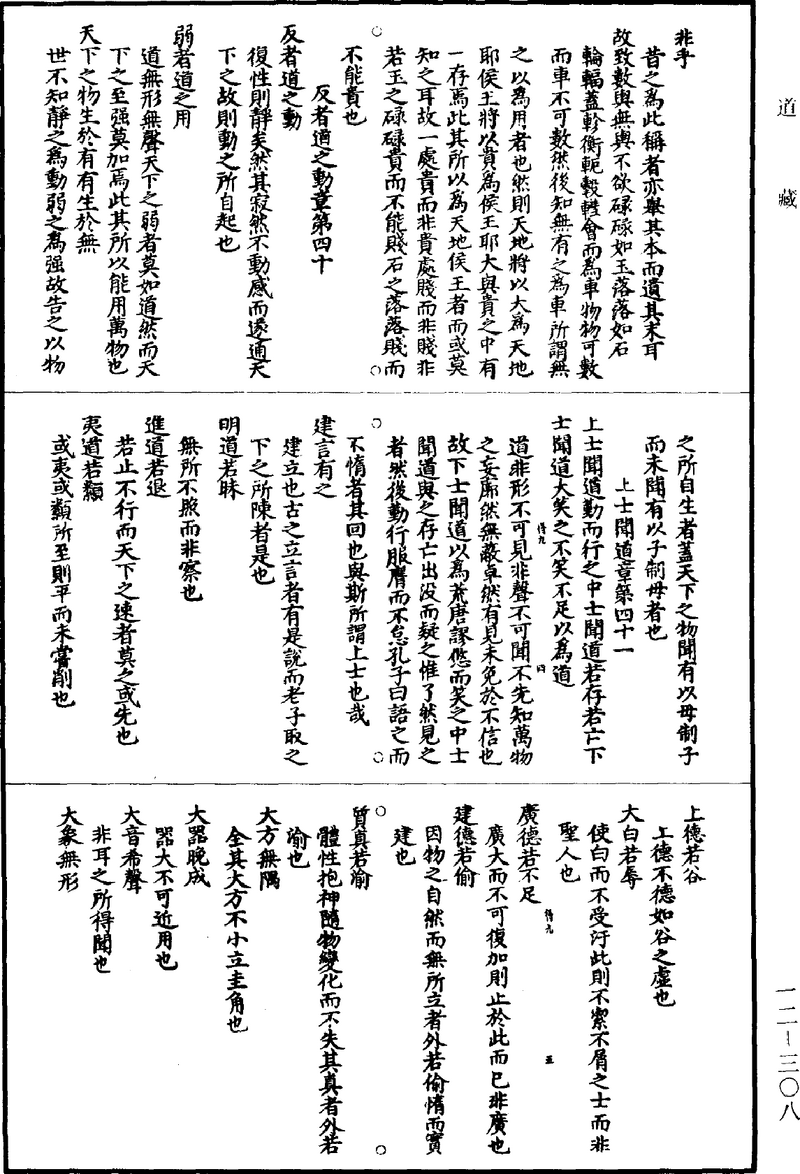 道藏
非乎
昔之為此稱者亦舉其本而遺其末耳
故致數輿無輿不欲碌碌如玉落落如石
輪輻蓋軫衡軛轂轊會而為車物物可數
而車不可數然後知無有之為車所謂無
之以為用者也然則天地將以大為天地
耶侯王將以貴為侯王耶大與貴之中有
一存焉此其所以為天地侯王者而或莫
知之耳故一處貴而非貴處賤而非賤非
若玉之碌碌貴而不能賤石之落落賤而
不能貴也
反者道之動章第四十
反者道之動
復性則靜矣然其寂然不動感而遂通天
下之故則動之所自起也
弱者道之用
道無形無聲天下之弱者莫如道然而天
下之至强莫加焉此其所以能用萬物也
天下之物生於有有生於無
世不知靜之為動弱之為强故告之以物
之所自生者蓋天下之物聞有以母制子
而未聞有以子制母者也
上士聞道章第四十一
上士聞道勤而行之中士聞道若存若亡下
士聞道大笑之不笑不足以為道
道非形不可見非聲不可聞不先知萬物
之妄廓然無蔽卓然有見未免於不信也
故下士聞道以為荒唐謬悠而笑之中士
聞道與之存亡出没而疑之惟了然見之
者然後勤行服膺而不怠孔子曰語之而
不惰者其回也與斯所謂上士也哉
建言有之
建立也古之立言者有是說而老子取之
下之所陳者是也
明道若昧
無所不照而非察也
進道若退
若止不行而天下之速者莫之或先也
夷道若纇
或夷或纇所至則平而未嘗削也
上德若谷
上德不德如谷之虛也
大白若辱
使白而不受汙此則不絜不屑之士而非
聖人也
廣德若不足
廣大而不可復加則止於此而已非廣也
建德若偷
因物之自然而無所立者外若偷惰而實
建也
質真若渝
體性抱神隨物變化而不失其真者外若
渝也
大方無隅
全其大方不小立圭角也
大器晚成
器大不可近用也
大音希聲
非耳之所得聞也
大象無形
一二—三〇八